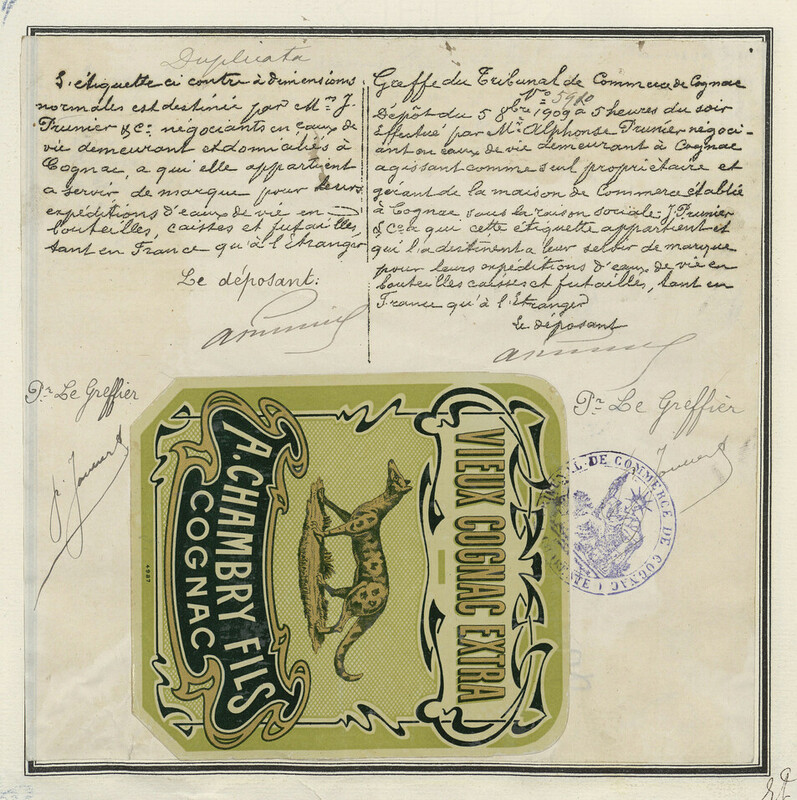 Duplicata
L'étiquette ci contre à dimensions
normales est destinée par Mrs J.
Prunier & Co. négociants en eaux de
vie demeurant et domiciliés à
Cognac, a qui elle appartient
a servir de marque pour leurs
expéditions d'eaux de vie en
bouteilles, caisses et futailles,
tant en France qu'à l'Étranger
Le déposant:
Greffe du Tribunal de Commerce de Cognac
No
Dépôt du 5 8bre 1909 à 5 heures du soir
Effectué par Mr Alphonse Prunier négoci-
ant en eaux de vie demeurant à Cognac
agissant comme seul propriétaire et
gérant de la maison de Commerce établie
à Cognac sous la raison sociale J. Prunier
& Co a qui cette étiquette appartient et
qui la destinent a leur servir de marque
pour leurs expéditions d'eaux de vie en
bouteilles caisses et futailles, tant en
France qu'à l'Étranger
Le déposant
Pr Le Greffier
Pr Le Greffier
VIEUX COGNAC EXTRA
A. CHAMBRY FILS
COGNAC
TRIBUNAL DE COMMERCE DE COGNAC